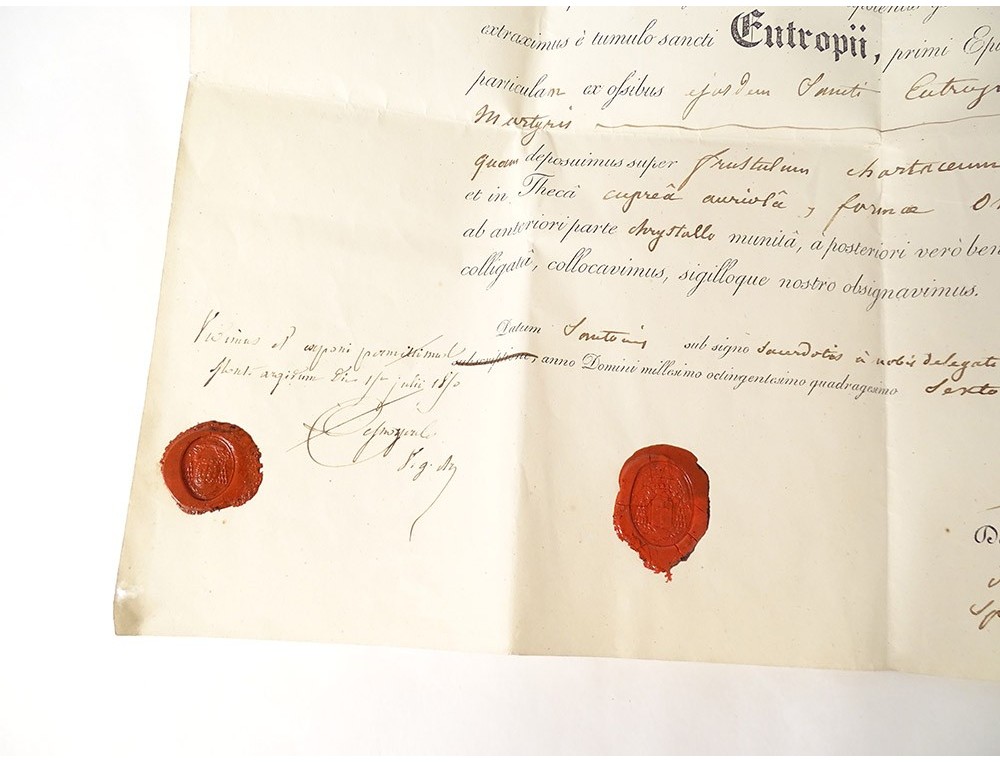 extraximus è tumulo sancti Eutropii, primi Epi
particulam ex ossibus ejusdem Sancti Eutrop
Martyris
quam deposuimus super frustulum chartaceum
et in Thecâ cupreâ auriolâ, formæ O
ab anteriori parte chrystallo munitâ, à posteriori verò ben
colligatâ, collocavimus, sigilloque nostro obsignavimus.
Datum Santonis sub signo Sacerdotis à nobis delegate
subscriptione, anno Domini millesimo octingentesimo quadragesimo Sexto
Vidimus et exponi permittimus
die 15 julii 1850
v. g.
D
Sp